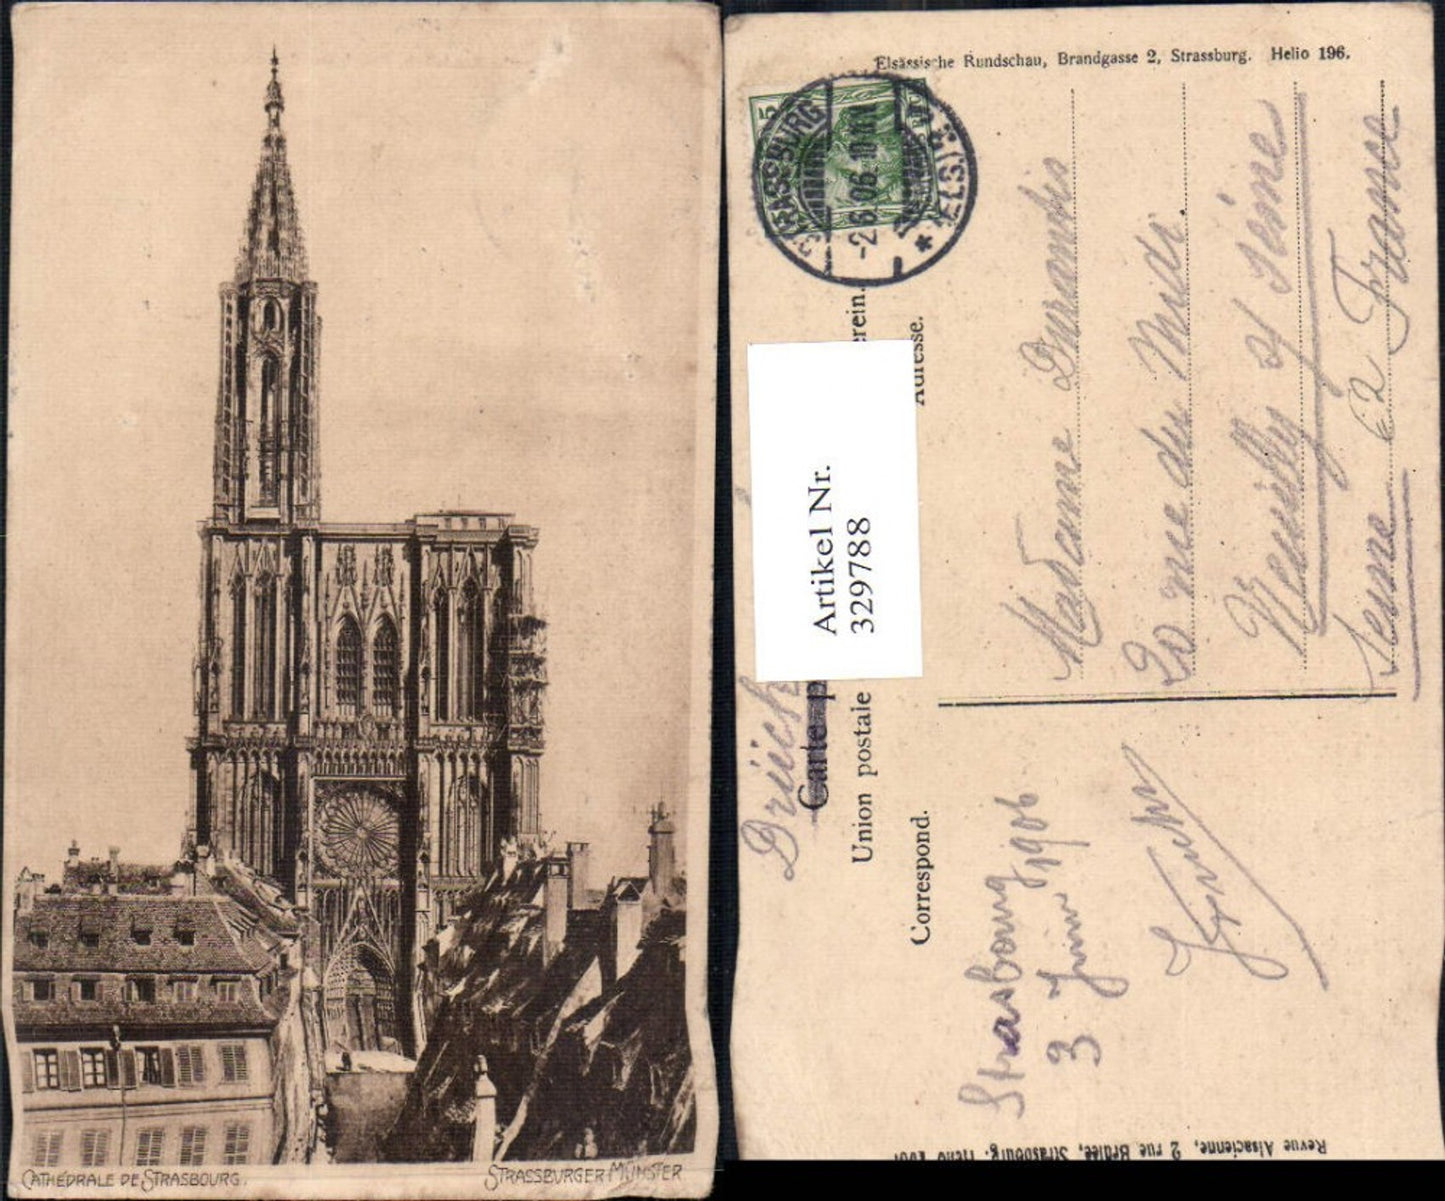 CATHÉDRALE DE STRASBOURG.
STRASSBURGER MÜNSTER
Elsässische Rundschau, Brandgasse 2, Strassburg. Helio 196.
5
STRASSBURG
-2.6.06.
* (ELS.)
Artikel Nr.
329788
Drück
Carte p
Union postale
erein.
Correspond.
Adresse.
Madame Durandis
20 rue du Midi.
Neuilly s/ Seine
Seine France
Strasbourg
3 Juin 1906
Revue Alsacienne, 2 rue Brûlée, Strasbourg.